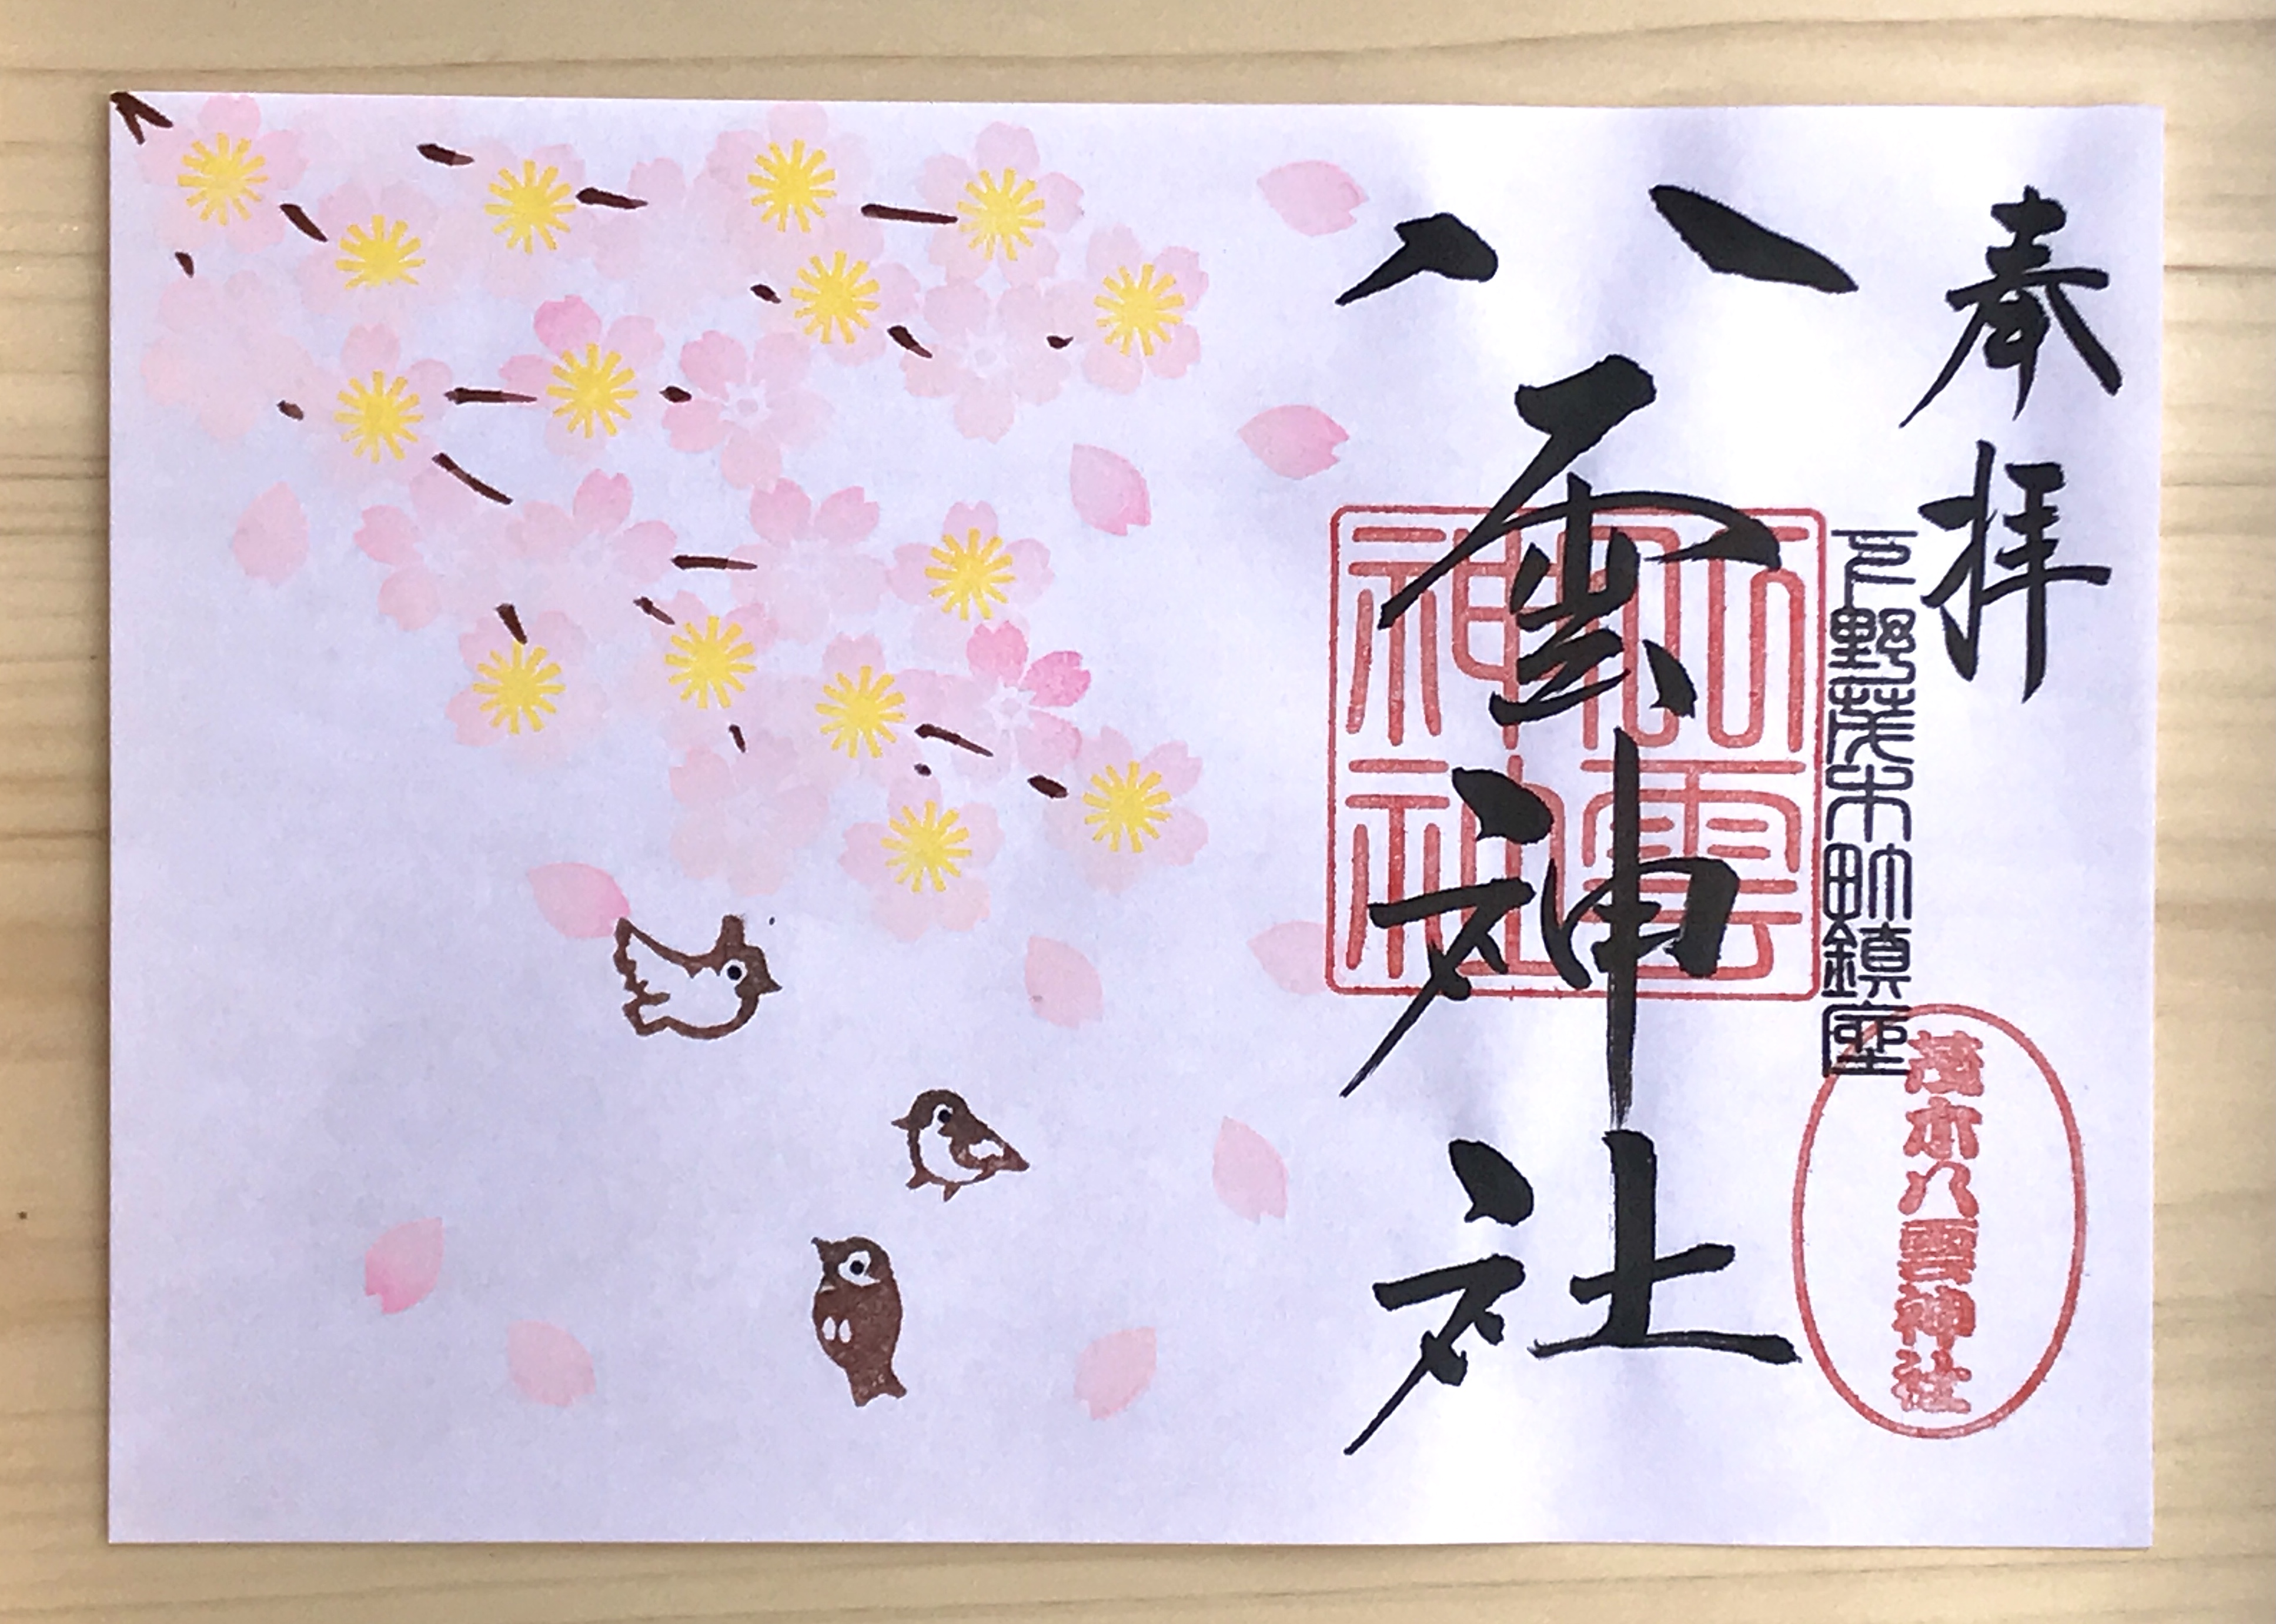 奉拝
下野茂木町鎮座
茂木八雲神社
八雲神社
八雲神社